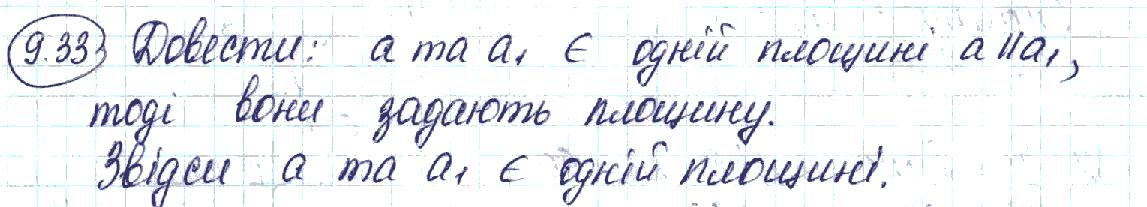 9.33 Довести: a та a₁ ∈ одній площині a ∥ a₁,
тоді вони задають площину.
Звідси a та a₁ ∈ одній площині.